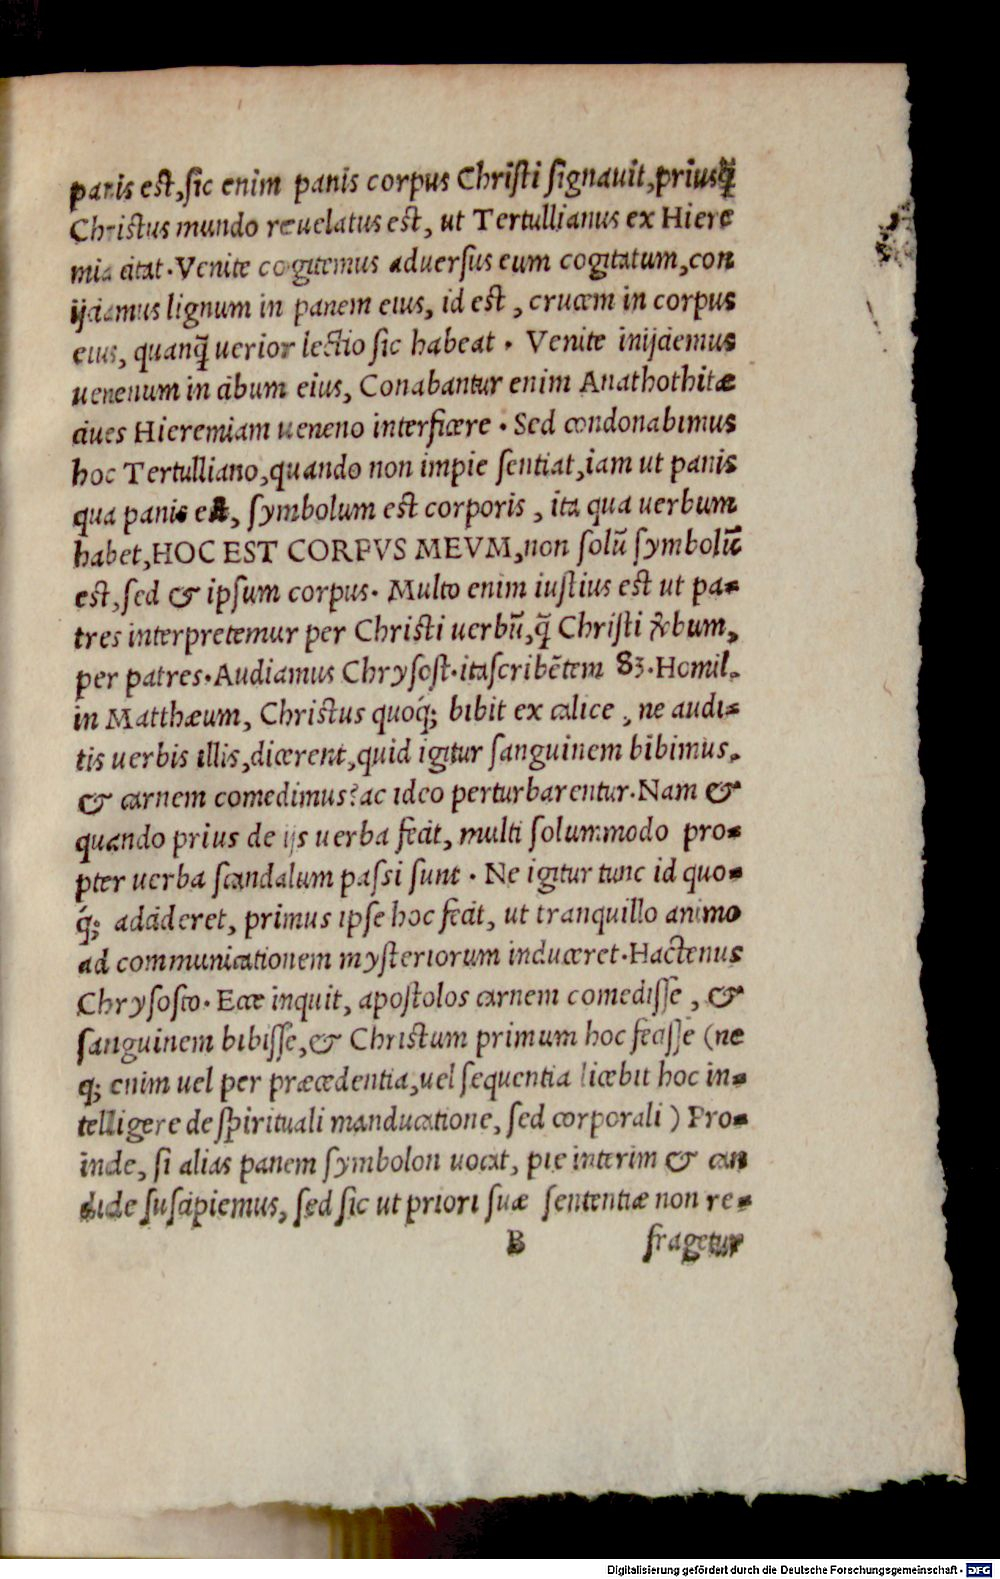 panis est, sic enim panis corpus Christi signauit, priusq̃
Christus mundo reuelatus est, ut Tertullianus ex Hiere
mia citat. Venite cogitemus aduersus eum cogitatum, con
ijciamus lignum in panem eius, id est, crucem in corpus
eius, quanq̃ uerior lectio sic habeat. Venite inijciemus
uenenum in cibum eius, Conabantur enim Anathothitæ
ciues Hieremiam ueneno interficere. Sed condonabimus
hoc Tertulliano, quando non impie sentiat, iam ut panis
qua panis est, symbolum est corporis, ita qua uerbum
habet, HOC EST CORPVS MEVM, non solũ symbolũ
est, sed & ipsum corpus. Multo enim iustius est ut pa-
tres interpretemur per Christi uerbũ, q̃ Christi ꝟbum,
per patres. Audiamus Chrysost. ita scribẽtem 83. Homil.
in Matthæum, Christus quoq́; bibit ex calice, ne audi-
tis uerbis illis, dicerent, quid igitur sanguinem bibimus,
& carnem comedimus? ac ideo perturbarentur. Nam &
quando prius de ijs uerba fecit, multi solummodo pro-
pter uerba scandalum passi sunt. Ne igitur tunc id quo-
q́; accideret, primus ipse hoc fecit, ut tranquillo animo
ad communicationem mysteriorum induceret. Hactenus
Chrysosto. Ecce inquit, apostolos carnem comedisse, &
sanguinem bibisse, & Christum primum hoc fecisse (ne
q; enim uel per præcedentia, uel sequentia licebit hoc in-
telligere de spirituali manducatione, sed corporali) Pro-
inde, si alias panem symbolon uocat, pie interim & can
dide suscipiemus, sed sic ut priori suæ sententiæ non re-
B fragetur
Digitalisierung gefördert durch die Deutsche Forschungsgemeinschaft - DFG